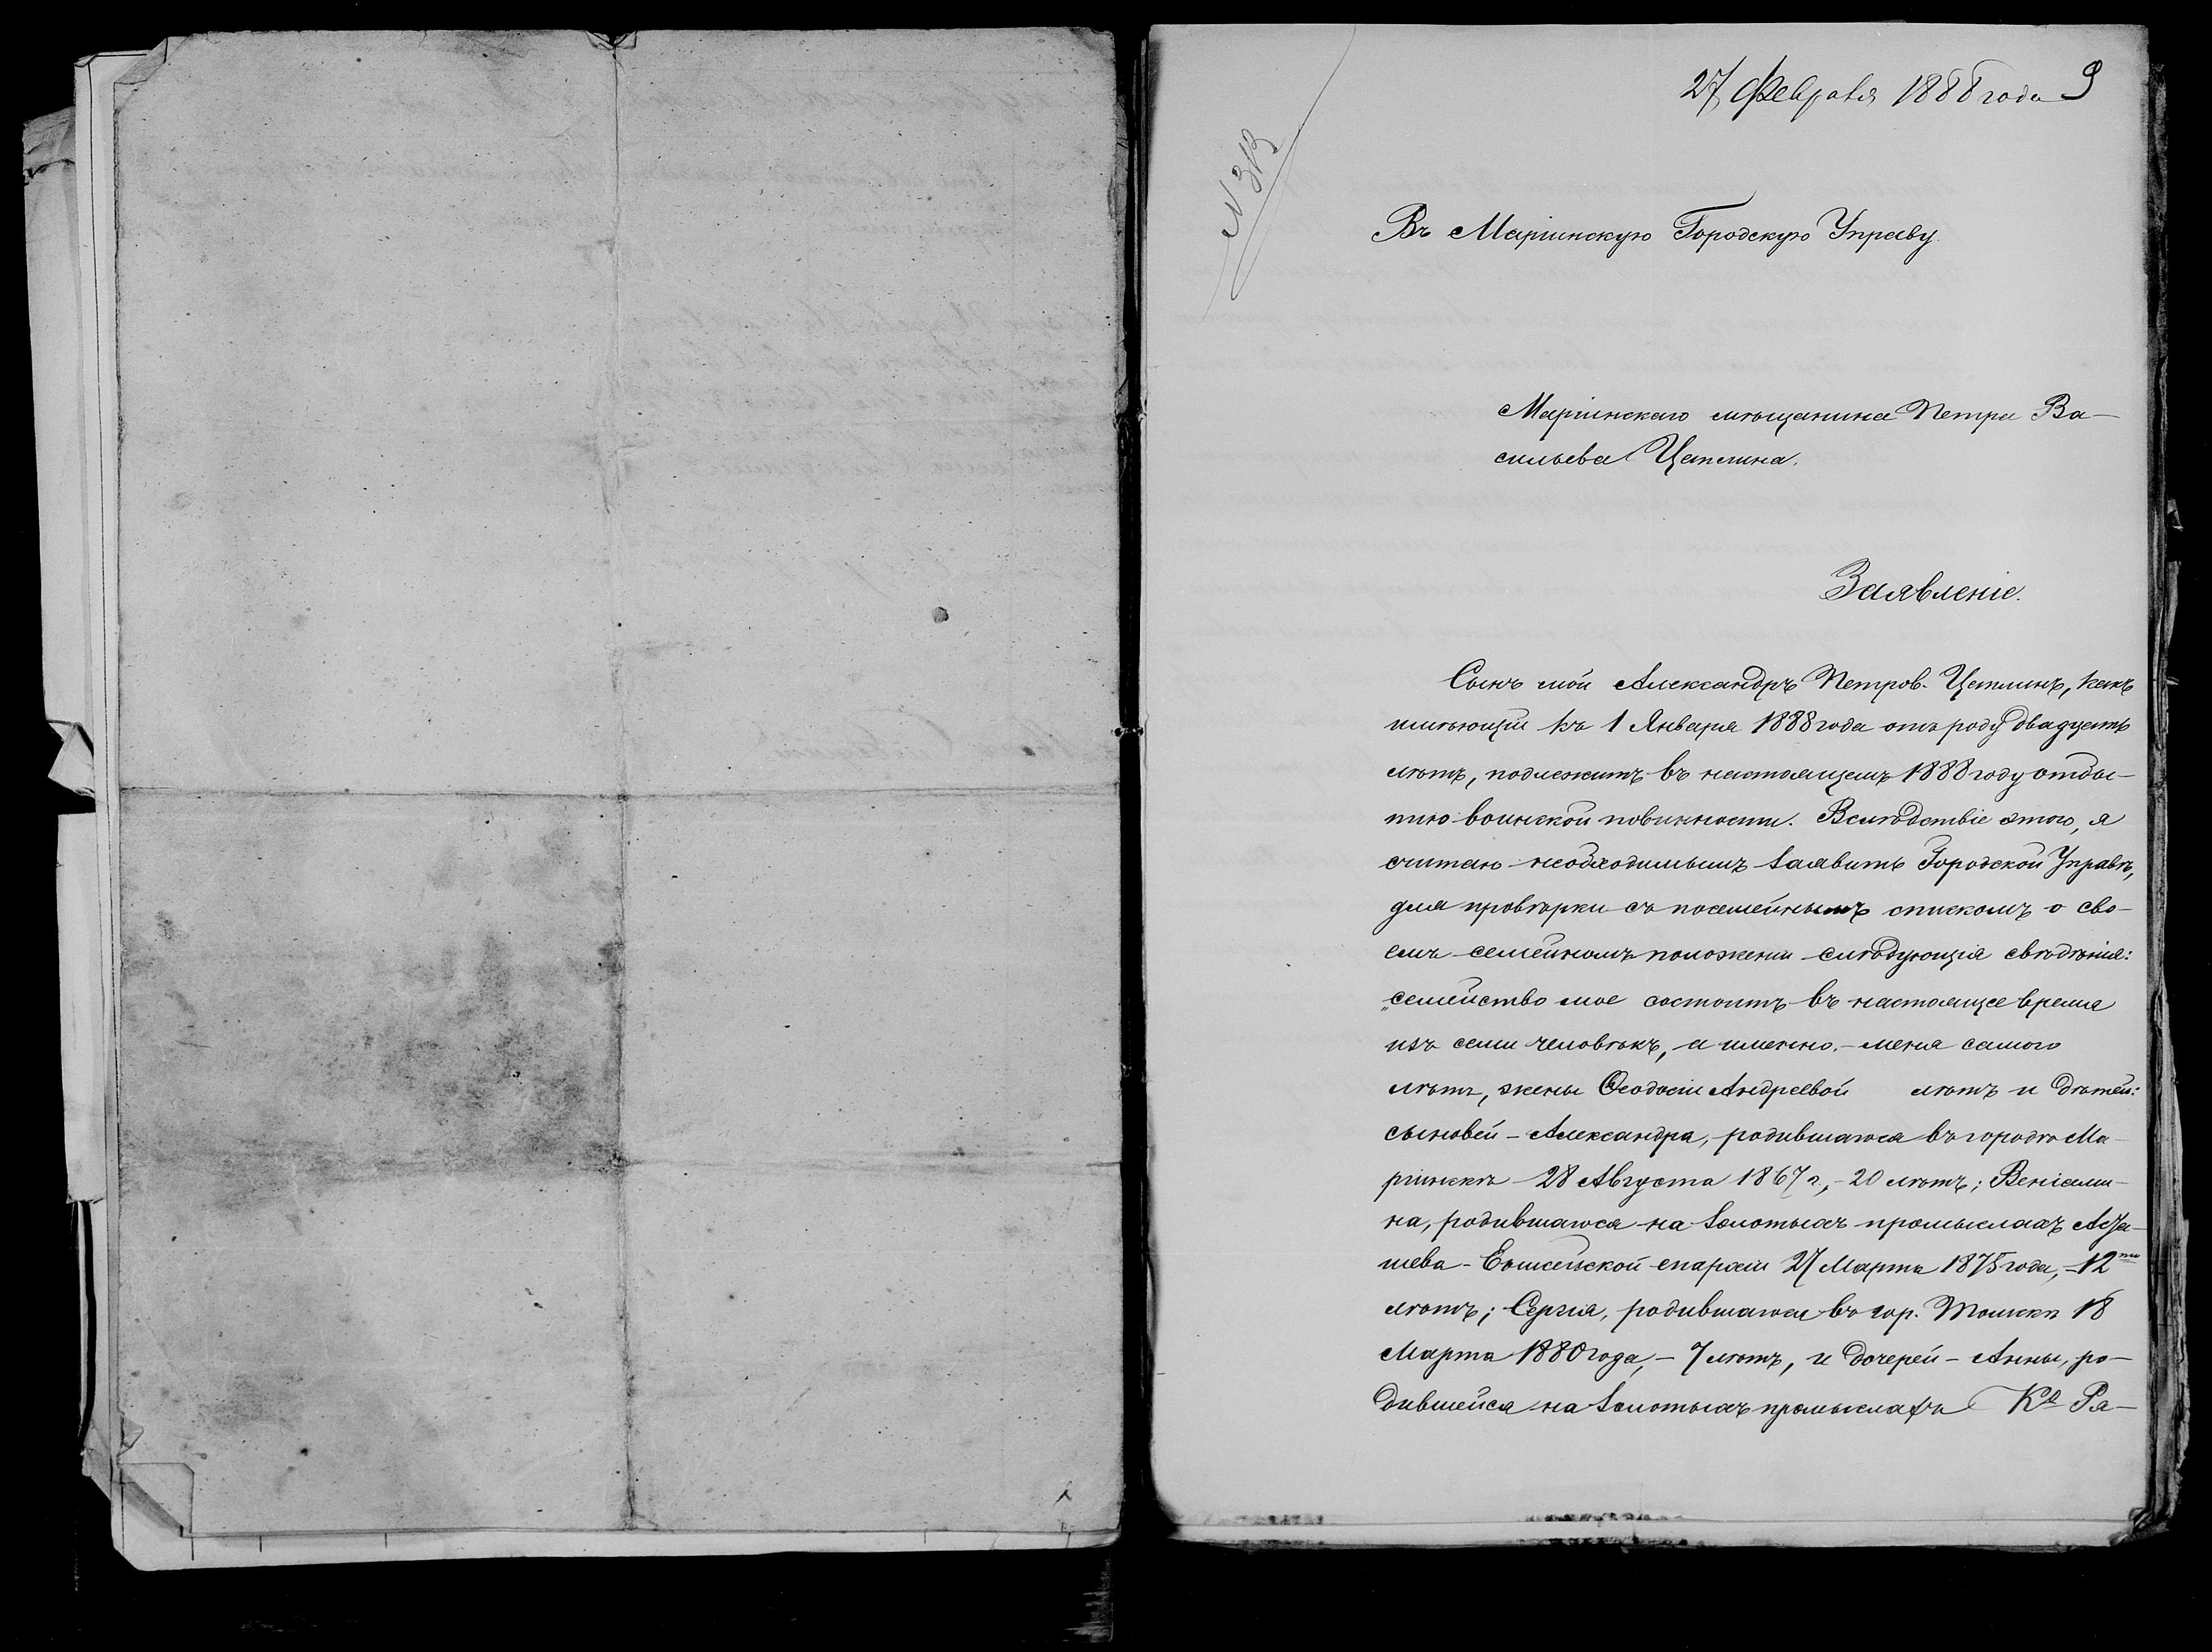 27 Февраля 1888 года 9
№ 313
Въ Маріинскую Городскую Управу.
Маріинскаго мѣщанина Петра Ва-
сильева Цаплина.
Заявленіе.
Сынъ мой Александръ Петров. Цаплинъ, какъ
имѣющій къ 1 Января 1888 года отъ роду двадцать
лѣтъ, подлежитъ въ настоящемъ 1888 году отбы-
тію воинской повинности. Вслѣдствіе этого, я
считаю необходимымъ заявить Городской Управѣ,
для провѣрки съ посемейнымъ спискомъ о сво-
емъ семейномъ положеніи слѣдующія свѣдѣнія:
„семейство мое состоитъ въ настоящее время
изъ семи человѣкъ, а именно: - меня самого
лѣтъ, жены Ѳеодосіи Андреевой лѣтъ и дѣтей:
сыновей - Александра, родившагося въ городѣ Ма-
ріинскѣ 28 Августа 1867 г., - 20 лѣтъ; Веніами-
на, родившагося на золотыхъ промыслахъ
Енисейской епархіи 27 Марта 1875 года, - 12ти
лѣтъ; Сергія, родившагося въ гор. Томскѣ 18
Марта 1880 года, - 7 лѣтъ, и дочерей - Анны, ро-
дившейся на золотыхъ промыслахъ Кⁿ Ря-